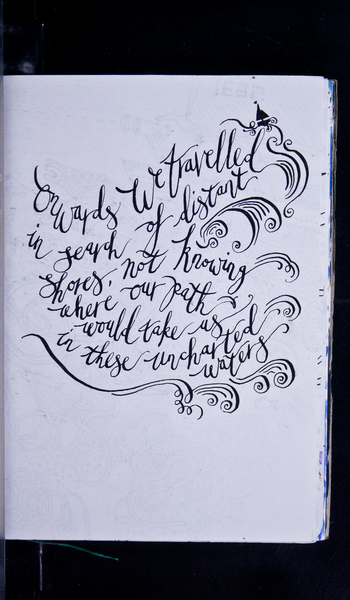 Onwards We travelled
in search of distant
shores, not knowing
where our path
would take us
in these uncharted
waters